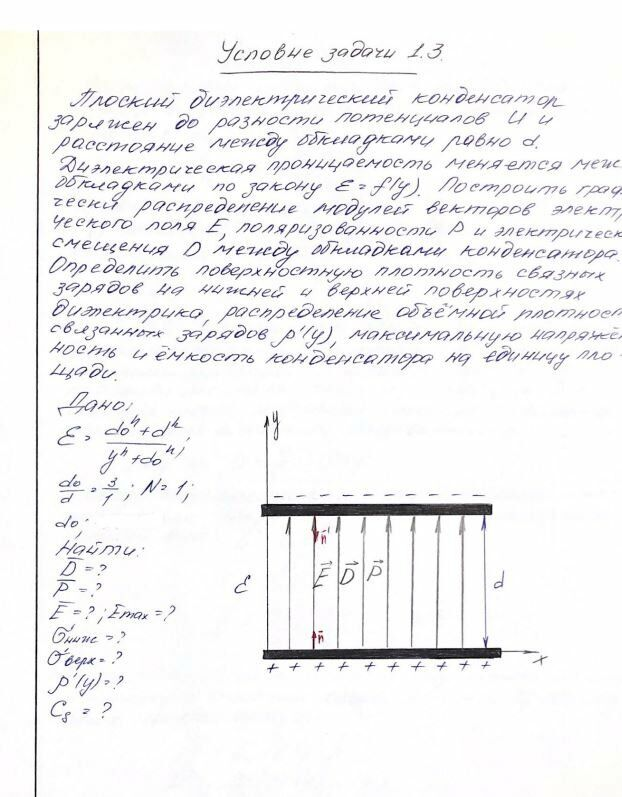 Условие задачи 1.3.
Плоский диэлектрический конденсатор
заряжен до разности потенциалов U и
расстояние между обкладками равно d.
Диэлектрическая проницаемость меняется меж
обкладками по закону ε = f(y). Построить граф
чески распределение модулей векторов электр
ческого поля E, поляризованности P и электрическ
смещения D между обкладками конденсатора.
Определить поверхностную плотность связных
зарядов на нижней и верхней поверхностях
диэлектрика, распределение объёмной плотнос
связанных зарядов ρ'(y), максимальную напряжён
ность и ёмкость конденсатора на единицу пло-
щади.
Дано:
ε = (d₀ⁿ + dⁿ)/(yⁿ + d₀ⁿ);
d₀/d = 3/1; N = 1;
d₀;
Найти:
D̅ = ?
P̅ = ?
E̅ = ?; Emax = ?
σ'нижс = ?
σ'верх = ?
ρ'(y) = ?
Cs = ?
y
n⃗'
E⃗ D⃗ P⃗
ε
d
n⃗
x
− − − − − − − − − −
+ + + + + + + + + +